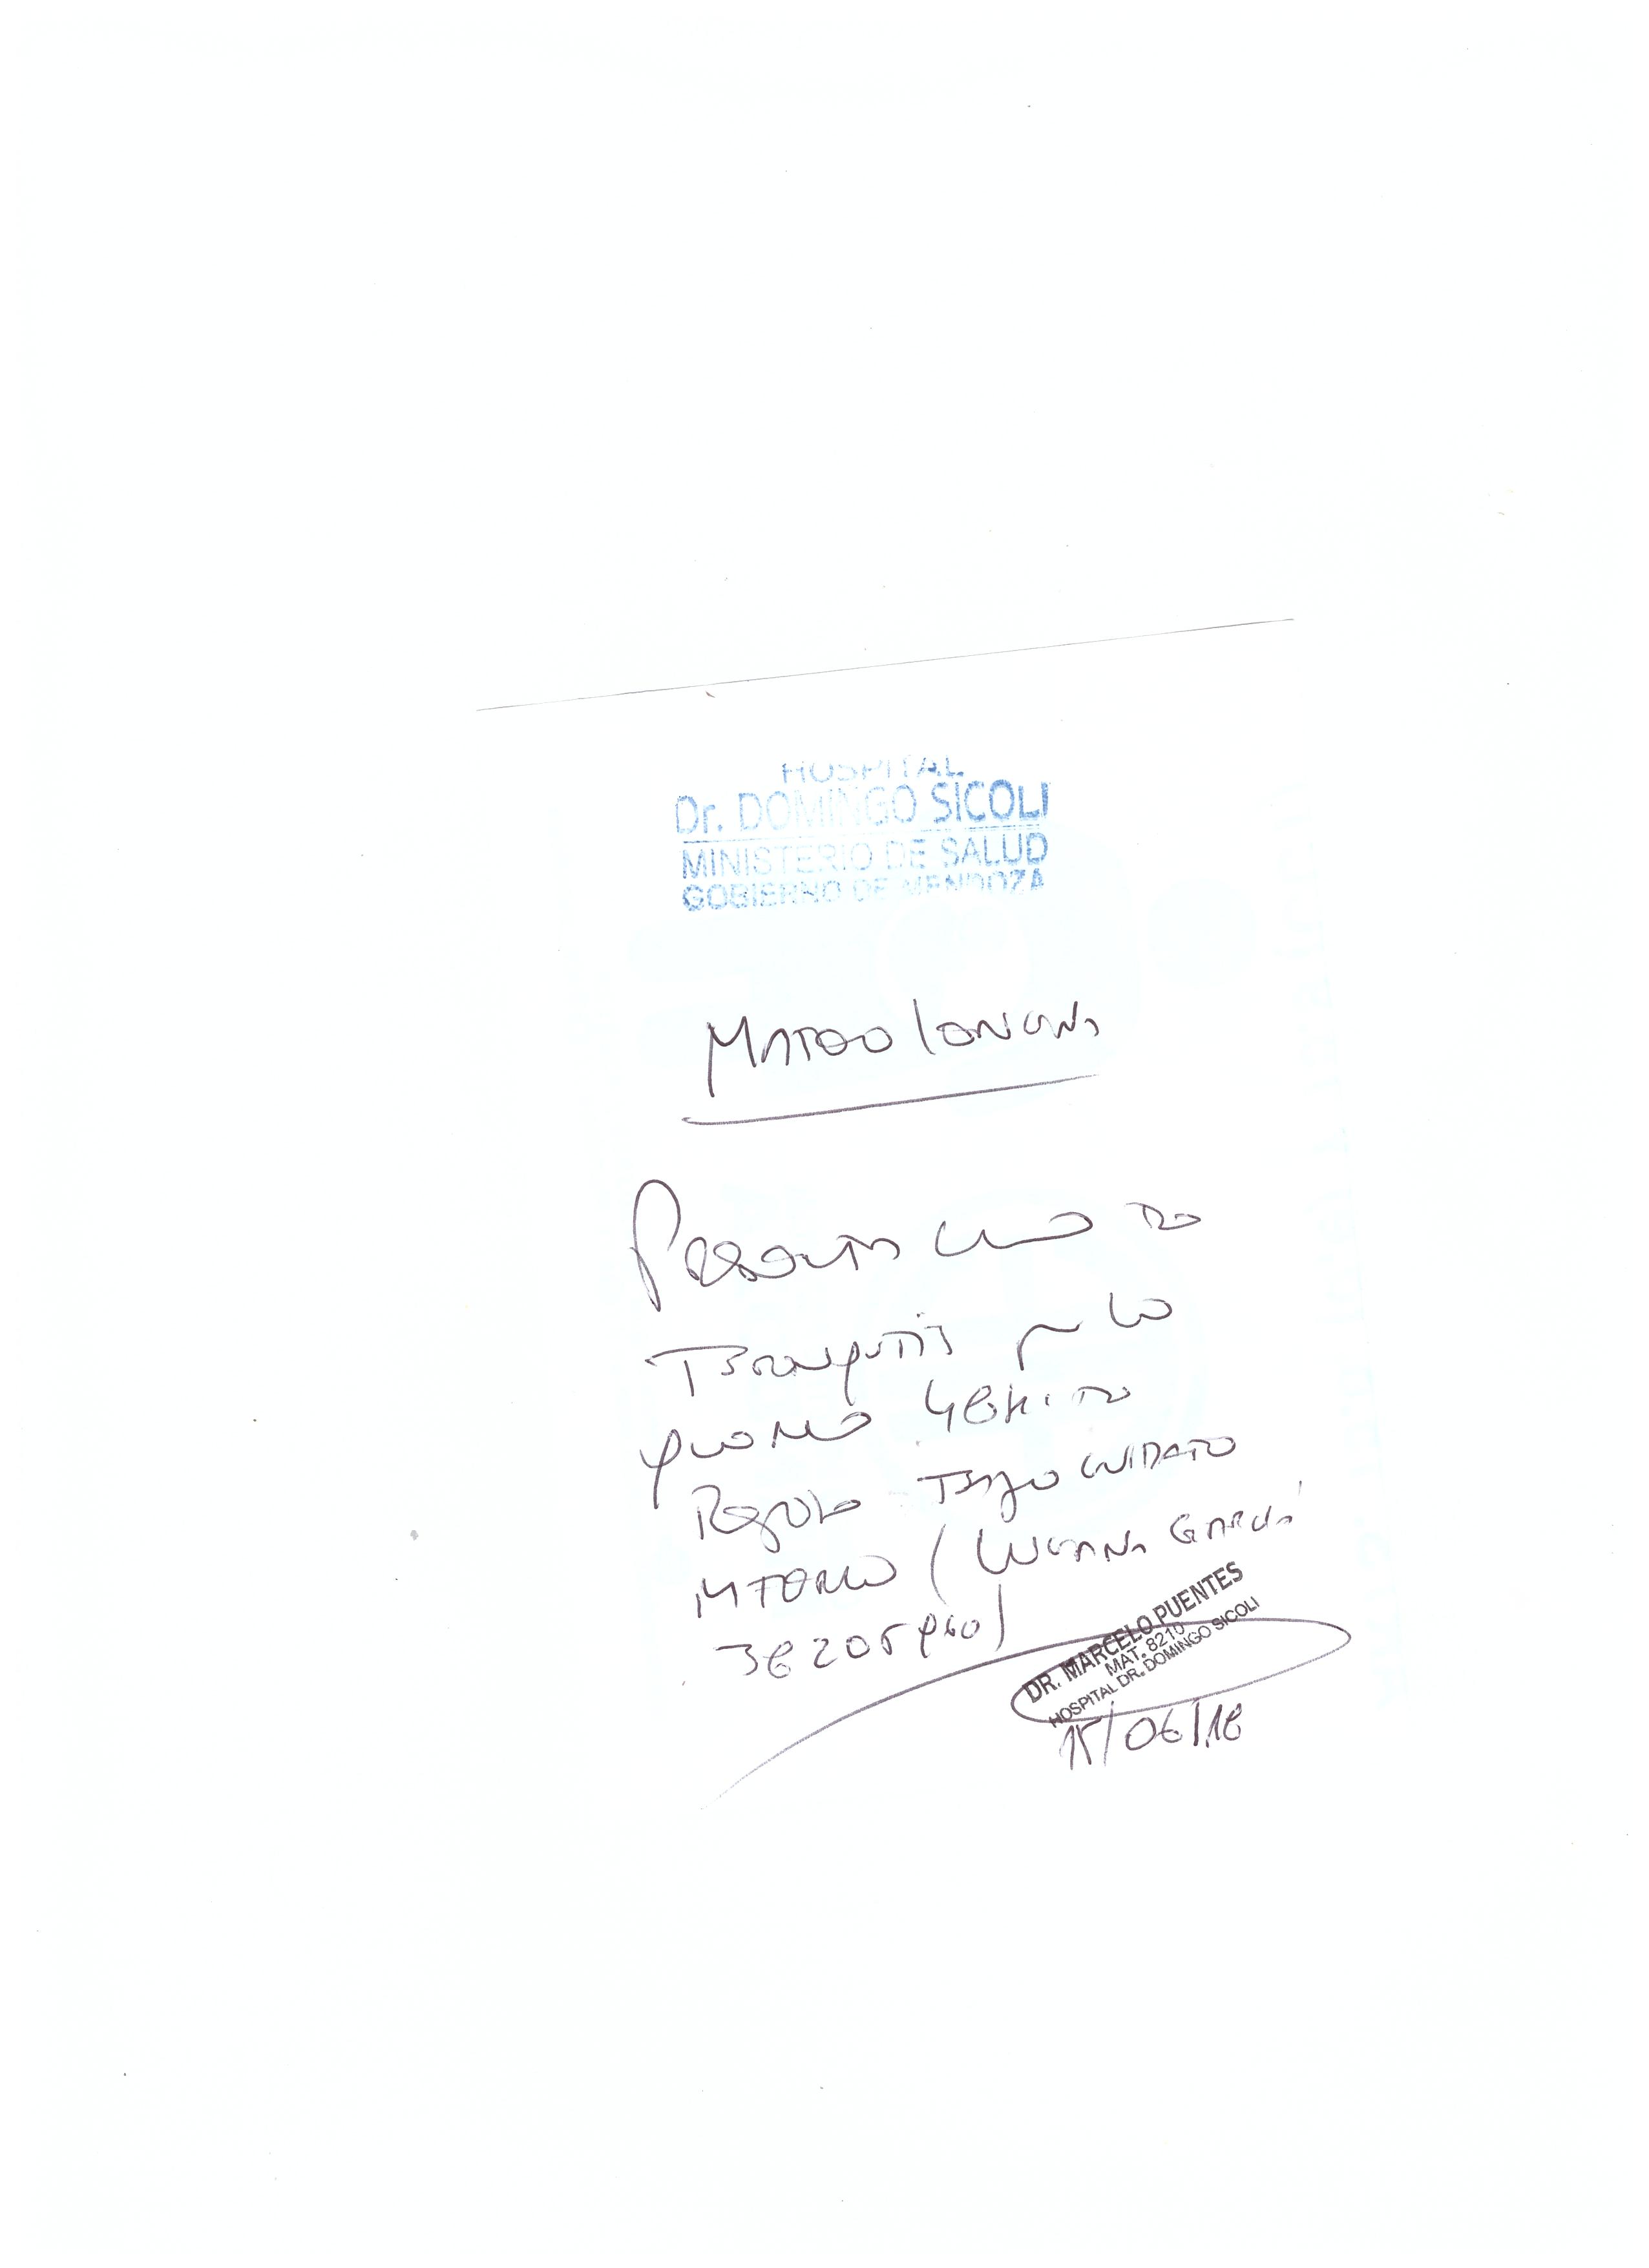 HOSPITAL
Dr. DOMINGO SICOLI
MINISTERIO DE SALUD
GOBIERNO DE MENDOZA
MATEO
Presenta cuadro de
por lo
que 48 hs. de
Reposo bajo cuidado
materno (Luciana García
38205960)
DR. MARCELO PUENTES
MAT. 8210
HOSPITAL DR. DOMINGO SICOLI
15/06/18